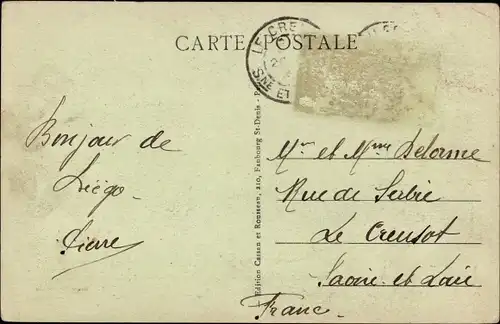 CARTE POSTALE
LE CRE
SNE ET
Bonjour de
Liégo
Pierre
Edition Cassen et Rousseau, 210, Faubourg St-Denis - P
Mr et Mme Delorme
Rue de Serbie
Le Creusot
Saone et Loir
Franc.